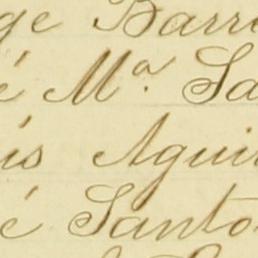 ge Barr
é Mª. Sa
is Agui
é Santo